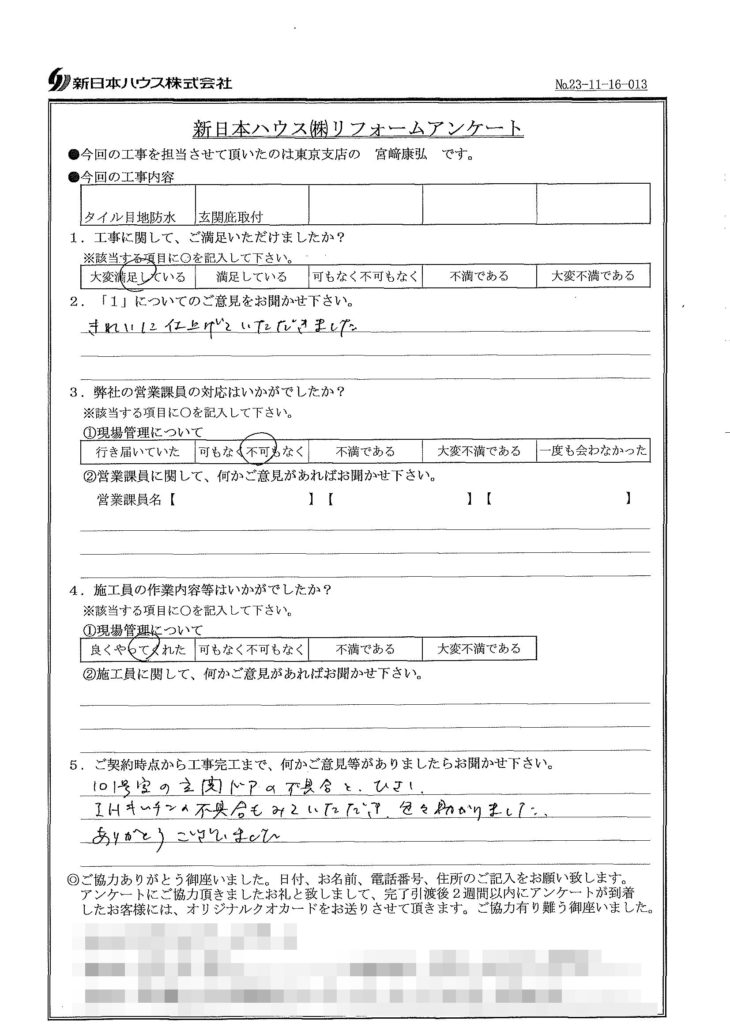 新日本ハウス株式会社
№23-11-16-013
新日本ハウス㈱リフォームアンケート
●今回の工事を担当させて頂いたのは東京支店の 宮﨑康弘 です。
●今回の工事内容
タイル目地防水 玄関庇取付
1．工事に関して、ご満足いただけましたか？
※該当する項目に○を記入して下さい。
大変満足している 満足している 可もなく不可もなく 不満である 大変不満である
2．「1」についてのご意見をお聞かせ下さい。
きれいに仕上げていただきました
3．弊社の営業課員の対応はいかがでしたか？
※該当する項目に○を記入して下さい。
①現場管理について
行き届いていた 可もなく不可もなく 不満である 大変不満である 一度も会わなかった
②営業課員に関して、何かご意見があればお聞かせ下さい。
営業課員名【 】【 】【 】
4．施工員の作業内容等はいかがでしたか？
※該当する項目に○を記入して下さい。
①現場管理について
良くやってくれた 可もなく不可もなく 不満である 大変不満である
②施工員に関して、何かご意見があればお聞かせ下さい。
5．ご契約時点から工事完工まで、何かご意見等がありましたらお聞かせ下さい。
101号室の玄関ドアの不具合と、ひさし、
IHキッチンの不具合もみていただき、色々助かりました。
ありがとうございました
◎ご協力ありがとう御座いました。日付、お名前、電話番号、住所のご記入をお願い致します。
アンケートにご協力頂きましたお礼と致しまして、完了引渡後２週間以内にアンケートが到着
したお客様には、オリジナルクオカードをお送りさせて頂きます。ご協力有り難う御座いました。